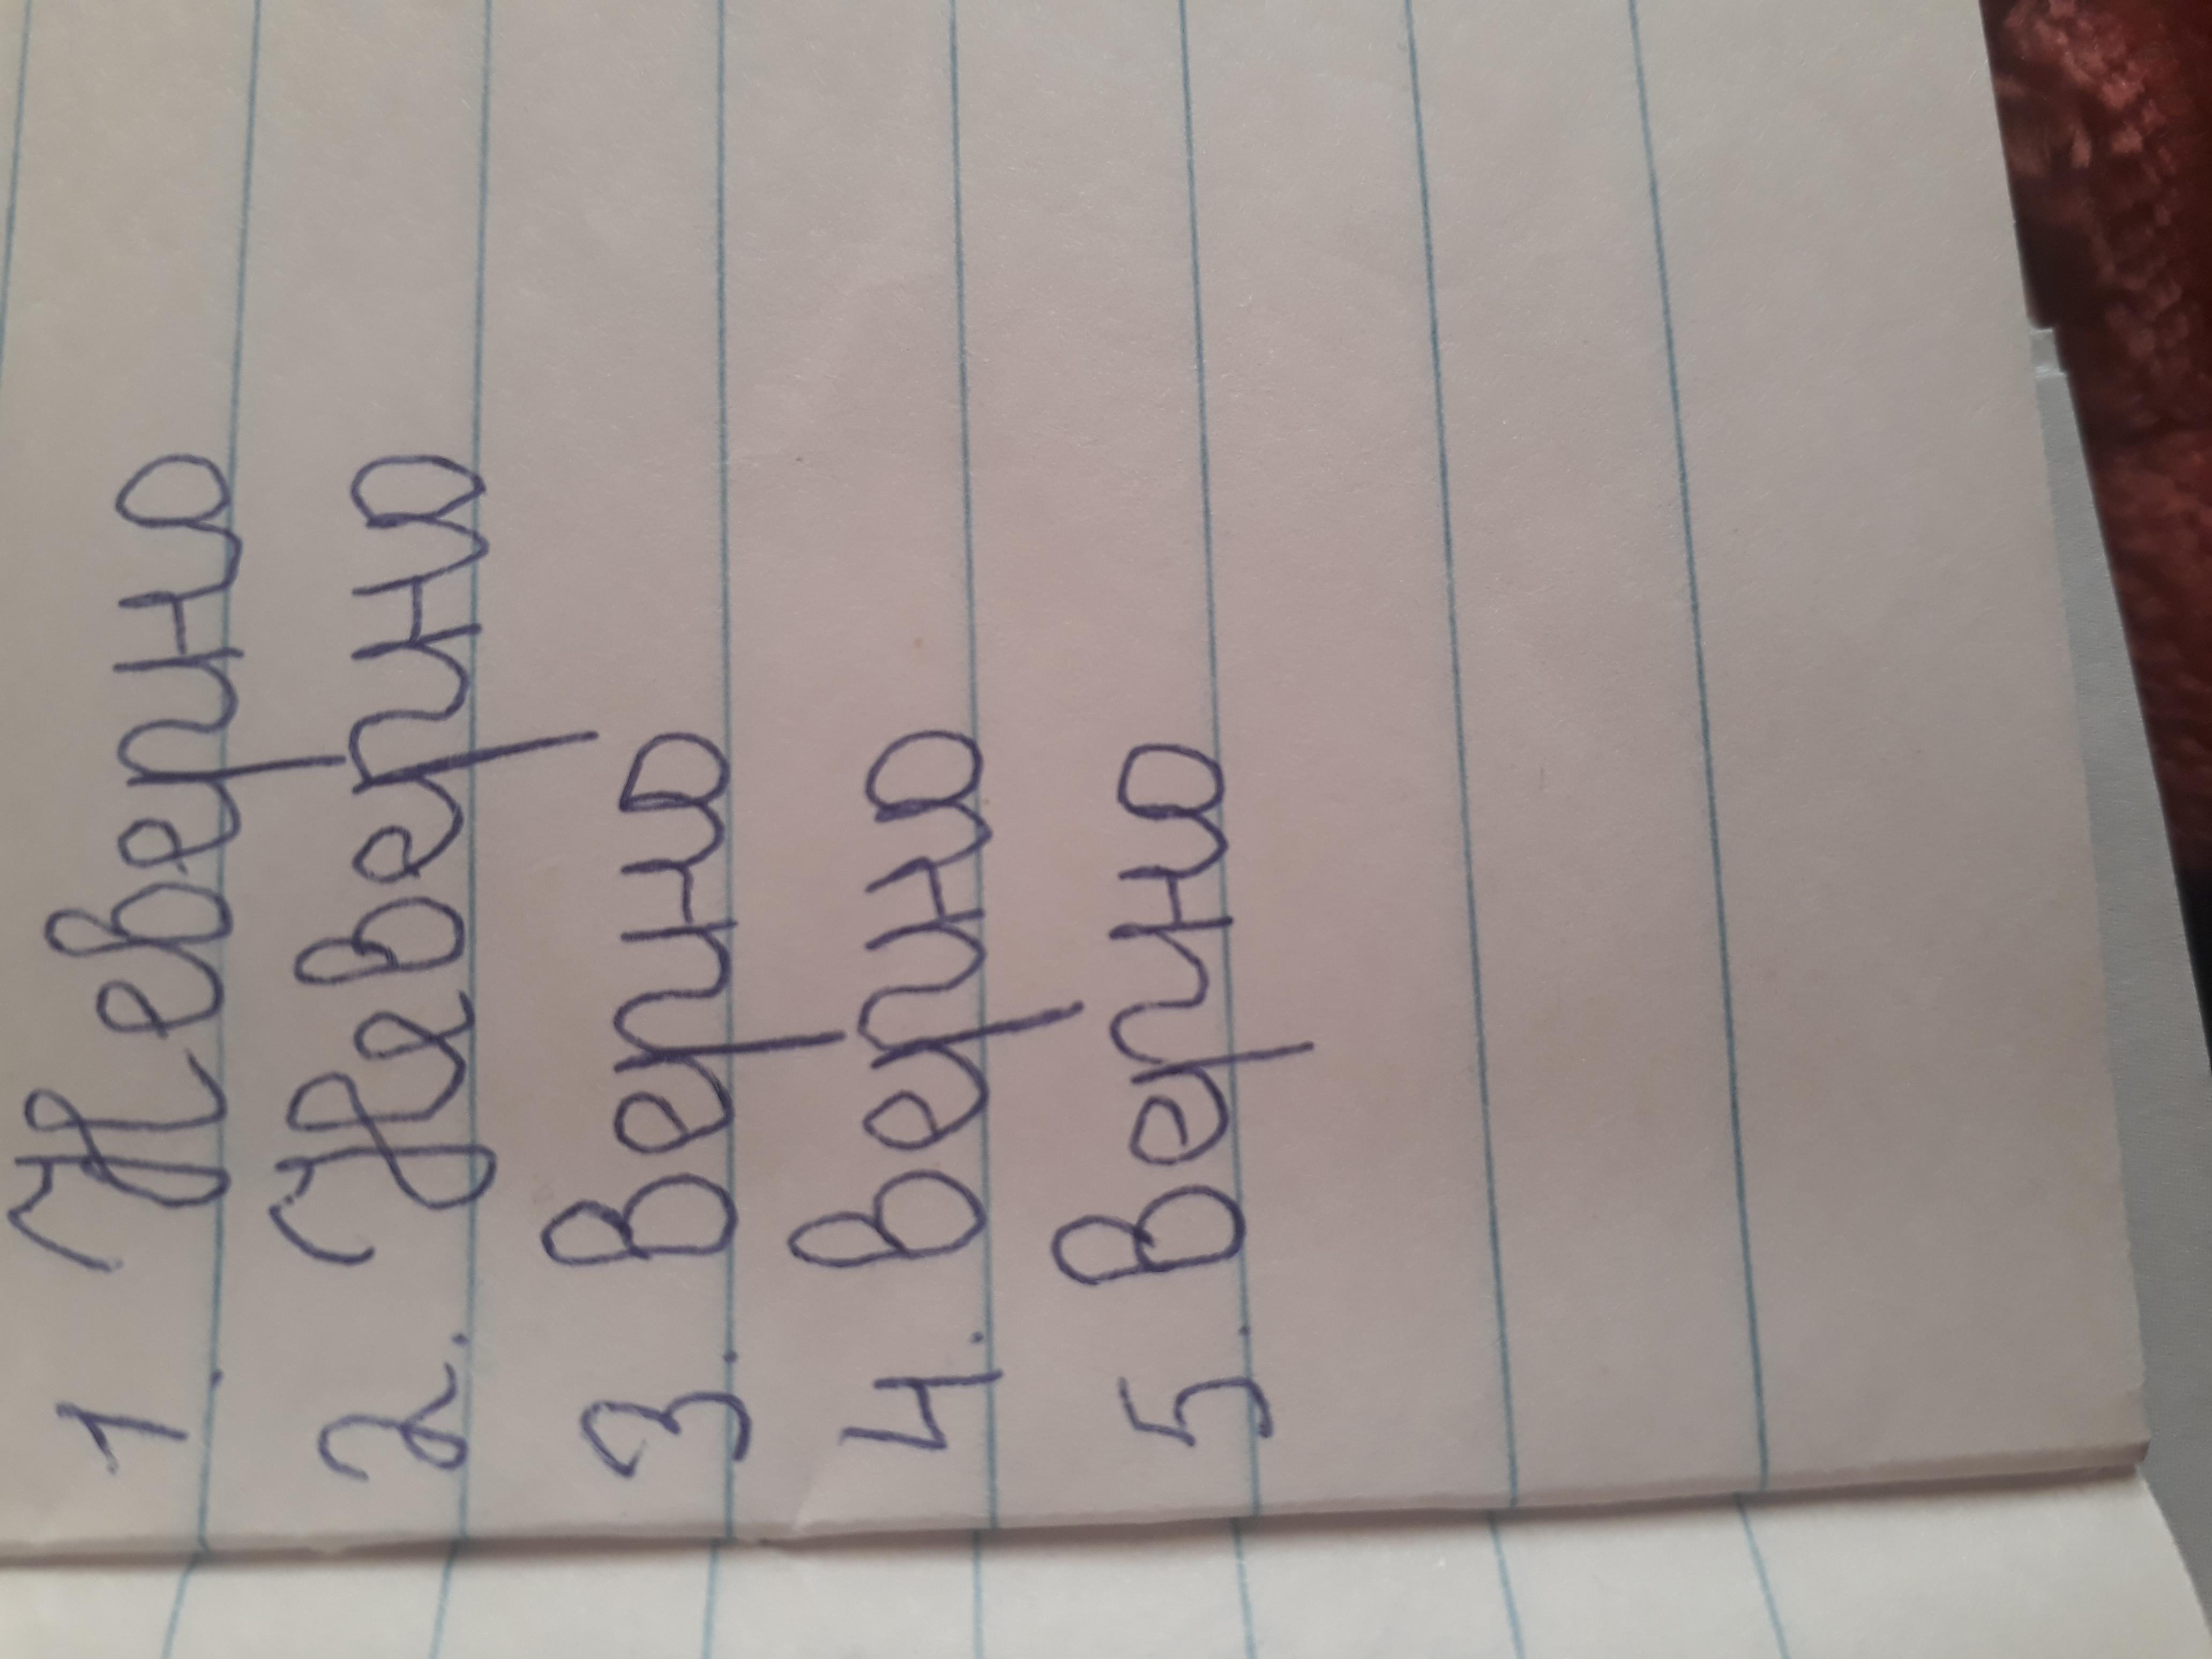 1. Неверно
2. Неверно
3. Верно
4. Верно
5. Верно